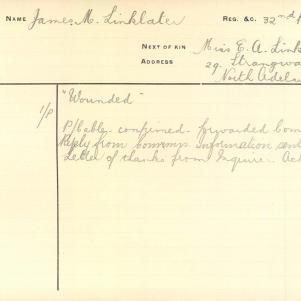 NAME James M. Linklater REG. &C. 32nd
NEXT OF KIN Miss E. A. Link
ADDRESS 29. Strangwa
North Adela
1/P "Wounded"
P/Cable confirmed forwarded Com
Reply from Commns. Information sent
Letter of thanks from Inquirer. Ack